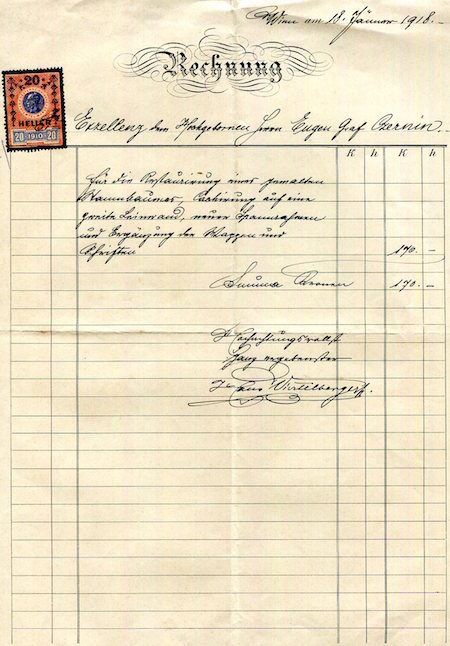 Wien am 18. Jänner 1918.-
Rechnung
20
HELLER
20 1910 20
Exellenz dem Hochgebornen Herrn Eugen Graf Czernin.
K h K h
Für die Restaurirung eines gemalten
Stammbaumes, Cachirung auf eine
zweite Leinwand, neuer Spannrahmen
und Ergänzung der Wappen und
Schriften 170.-
Summa Kronen 170.-
Hochachtungsvollst
ganz ergebenster